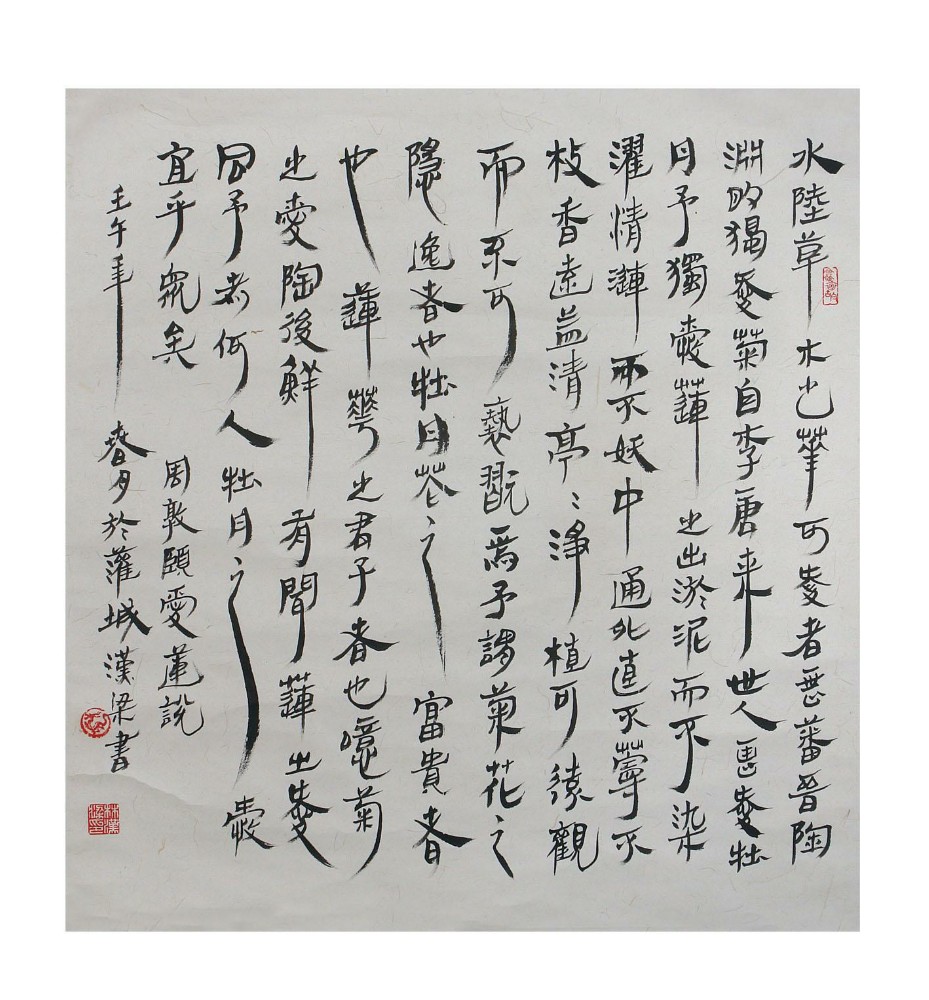 水陸草木之華可愛者甚蕃晉陶
淵明獨愛菊自李唐来世人甚愛牡
丹予獨愛蓮之出淤泥而不染
濯清漣而不妖中通外直不蔓不
枝香遠益清亭〻淨植可遠觀
而不可褻翫焉予謂菊花之
隱逸者也牡丹花之富貴者
也蓮華之君子者也噫菊
之愛陶後鮮有聞蓮之愛
同予者何人牡丹之愛
宜乎眾矣
周敦頤愛蓮說
壬午年春月於蓮城漢梁書
林漢梁印